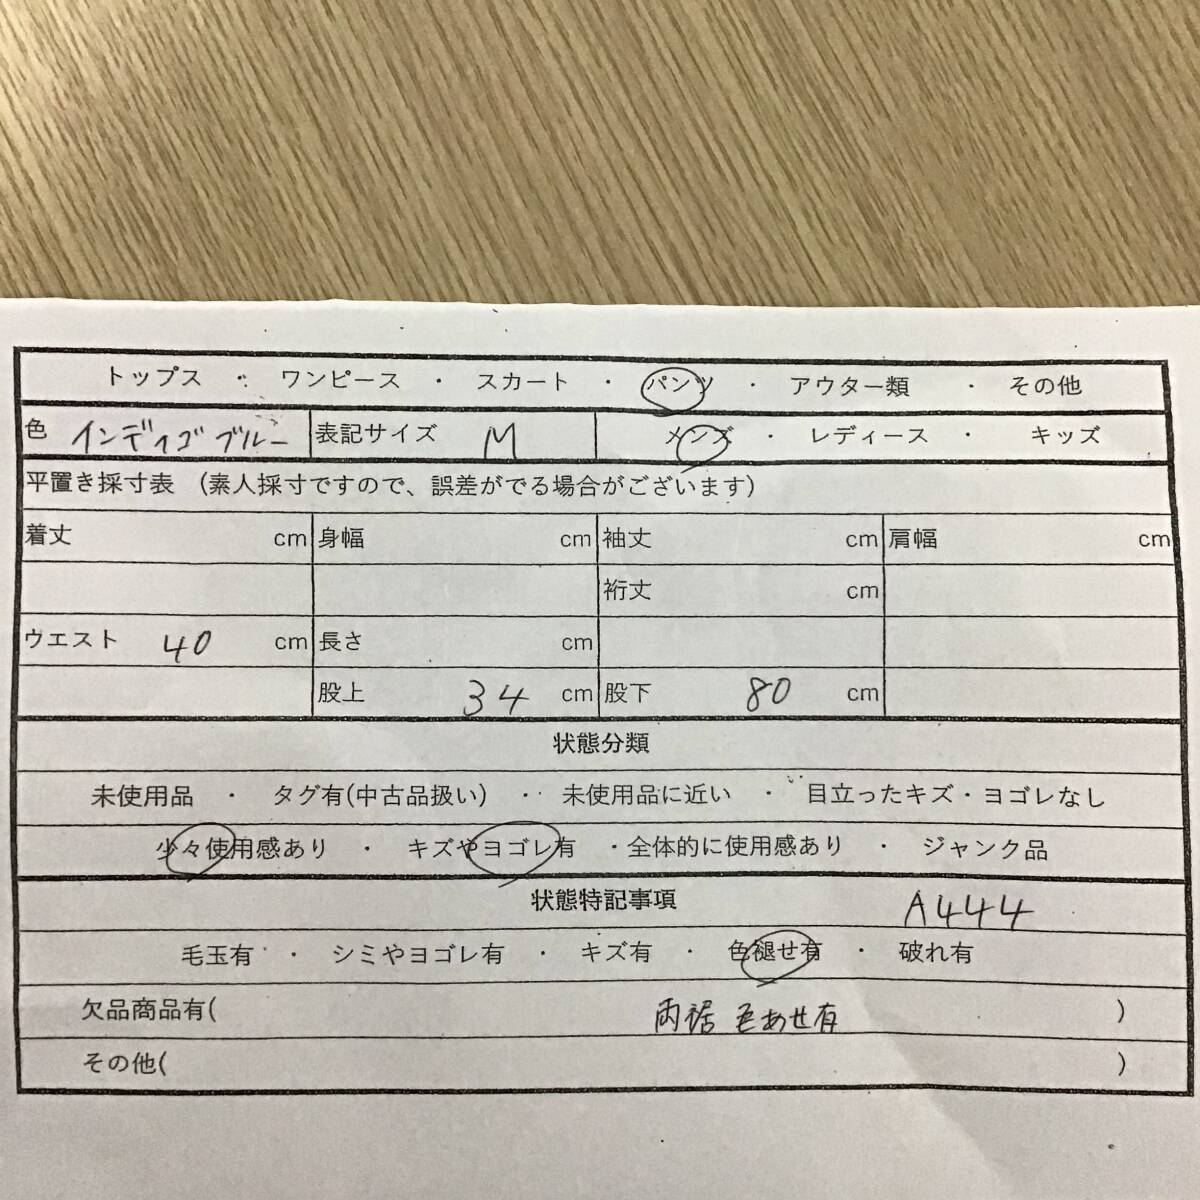 トップス ・ ワンピース ・ スカート ・ パンツ ・ アウター類 ・ その他
色 インディゴブルー 表記サイズ M メンズ ・ レディース ・ キッズ
平置き採寸表 (素人採寸ですので、誤差がでる場合がございます)
着丈 cm 身幅 cm 袖丈 cm 肩幅 cm
裄丈 cm
ウエスト 40 cm 長さ cm
股上 34 cm 股下 80 cm
状態分類
未使用品 ・ タグ有(中古品扱い) ・ 未使用品に近い ・ 目立ったキズ・ヨゴレなし
少々使用感あり ・ キズやヨゴレ有 ・全体的に使用感あり ・ ジャンク品
状態特記事項 A444
毛玉有 ・ シミやヨゴレ有 ・ キズ有 ・ 色褪せ有 ・ 破れ有
欠品商品有( 両裾 色あせ有 )
その他( )